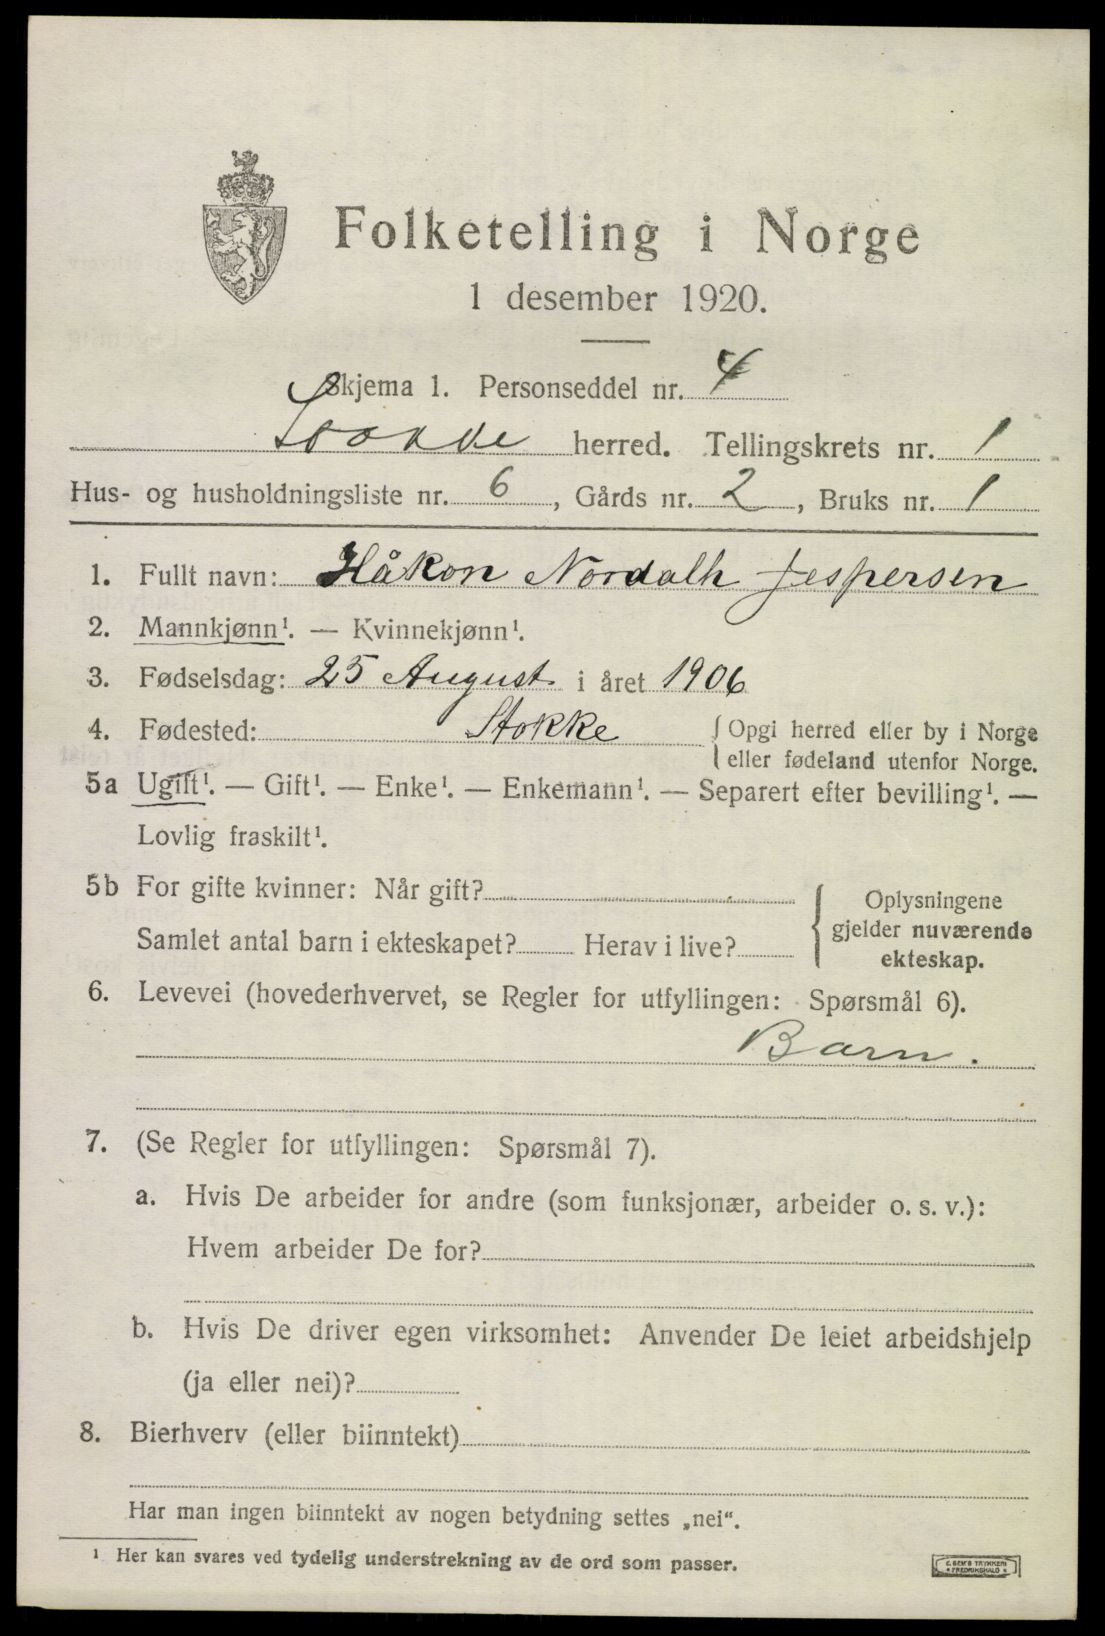 Folketelling i Norge
1 desember 1920.
Skjema 1. Personseddel nr. 4
herred. Tellingskrets nr. 1
Hus- og husholdningsliste nr. 6, Gårds nr. 2, Bruks nr. 1
1. Fullt navn: Håkon Nordalh Jespersen
2. Mannkjønn¹. — Kvinnekjønn¹.
3. Fødselsdag: 25 August i året 1906
4. Fødested: Stokke { Opgi herred eller by i Norge
eller fødeland utenfor Norge.
5a Ugift¹. — Gift¹. — Enke¹. — Enkemann¹. — Separert efter bevilling¹. —
Lovlig fraskilt¹.
5b For gifte kvinner: Når gift?
Samlet antal barn i ekteskapet? Herav i live?
{ Oplysningene
gjelder nuværende
ekteskap.
6. Levevei (hovederhvervet, se Regler for utfyllingen: Spørsmål 6).
Barn.
7. (Se Regler for utfyllingen: Spørsmål 7).
a. Hvis De arbeider for andre (som funksjonær, arbeider o. s. v.):
Hvem arbeider De for?
b. Hvis De driver egen virksomhet: Anvender De leiet arbeidshjelp
(ja eller nei)?
8. Bierhverv (eller biinntekt)
Har man ingen biinntekt av nogen betydning settes „nei“.
¹ Her kan svares ved tydelig understrekning av de ord som passer.
TRYKKERI
FREDRIKSHALD